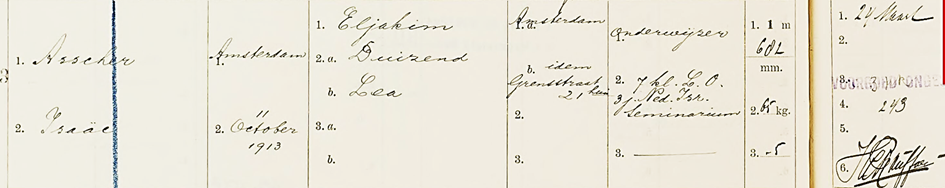 1. Asscher
2. Isaäc
Amsterdam
1.
11
2. October
1913
1. Eljakim
2.a. Duizend
b. Lea
3.a.
b.
Amsterdam
1.a.
b. idem
Grensstraat
21 huis
2.
3.
onderwijzer
1.
2. 7 kl. L.O.
3 j. Ned. Isr.
Seminarium
3.
1. 1 m
682
mm.
2. 65 kg.
3. -5
1. 24 Maart
2.
3.
4. 243
5.
6.